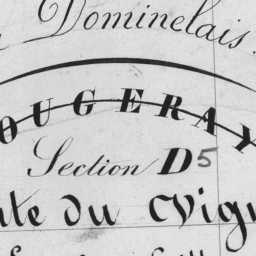 Dominelais
OUGERAY
Section D5
du Vign